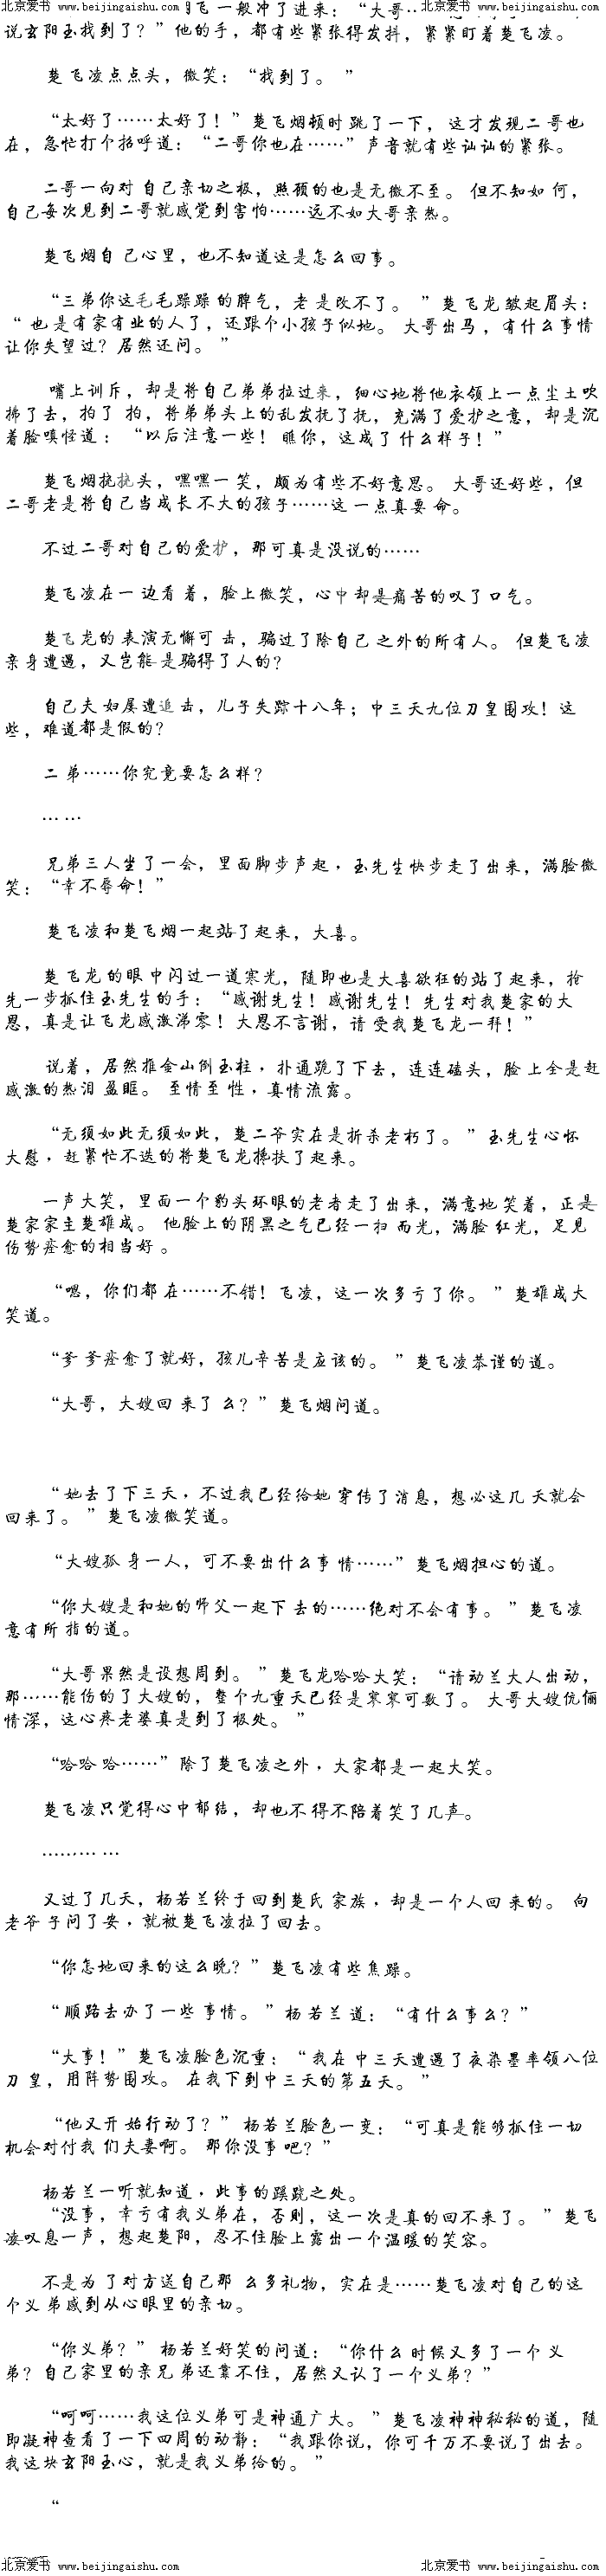 北京爱书 www.beijingaishu.com 北京爱书 www.beijingaishu.com
飞一般冲了进来：“大哥
说玄阳玉找到了？”他的手，都有些紧张得发抖，紧紧盯着楚飞凌。
楚飞凌点点头，微笑：“找到了。”
“太好了……太好了！”楚飞烟顿时跳了一下，这才发现二哥也
在，急忙打个招呼道：“二哥你也在……”声音就有些讪讪的紧张。
二哥一向对自己亲切之极，照顾的也是无微不至。但不知如何，
自己每次见到二哥就感觉到害怕……远不如大哥亲热。
楚飞烟自己心里，也不知道这是怎么回事。
“三弟你这毛毛躁躁的脾气，老是改不了。”楚飞龙皱起眉头：
“也是有家有业的人了，还跟个小孩子似地。大哥出马，有什么事情
让你失望过？居然还问。”
嘴上训斥，却是将自己弟弟拉过来，细心地将他衣领上一点尘土吹
拂了去，拍了拍，将弟弟头上的乱发抚了抚，充满了爱护之意，却是沉
着脸嗔怪道：“以后注意一些！瞧你，这成了什么样子！”
楚飞烟挠挠头，嘿嘿一笑，颇为有些不好意思。大哥还好些，但
二哥老是将自己当成长不大的孩子……这一点真要命。
不过二哥对自己的爱护，那可真是没说的……
楚飞凌在一边看着，脸上微笑，心中却是痛苦的叹了口气。
楚飞龙的表演无懈可击，骗过了除自己之外的所有人。但楚飞凌
亲身遭遇，又岂能是骗得了人的？
自己夫妇屡遭追击，儿子失踪十八年；中三天九位刀皇围攻！这
些，难道都是假的？
二弟……你究竟要怎么样？
……
兄弟三人坐了一会，里面脚步声起，玉先生快步走了出来，满脸微
笑：“幸不辱命！”
楚飞凌和楚飞烟一起站了起来，大喜。
楚飞龙的眼中闪过一道寒光，随即也是大喜欲狂的站了起来，抢
先一步抓住玉先生的手：“感谢先生！感谢先生！先生对我楚家的大
恩，真是让飞龙感激涕零！大恩不言谢，请受我楚飞龙一拜！”
说着，居然推金山倒玉柱，扑通跪了下去，连连磕头，脸上全是赶
感激的热泪盈眶。至情至性，真情流露。
“无须如此无须如此，楚二爷实在是折杀老朽了。”玉先生心怀
大慰，赶紧忙不迭的将楚飞龙搀扶了起来。
一声大笑，里面一个豹头环眼的老者走了出来，满意地笑着，正是
楚家家主楚雄成。他脸上的阴黑之气已经一扫而光，满脸红光，足见
伤势痊愈的相当好。
“嗯，你们都在……不错！飞凌，这一次多亏了你。”楚雄成大
笑道。
“爹爹痊愈了就好，孩儿辛苦是应该的。”楚飞凌恭谨的道。
“大哥，大嫂回来了么？”楚飞烟问道。
“她去了下三天，不过我已经给她穿传了消息，想必这几天就会
回来了。”楚飞凌微笑道。
“大嫂孤身一人，可不要出什么事情……”楚飞烟担心的道。
“你大嫂是和她的师父一起下去的……绝对不会有事。”楚飞凌
意有所指的道。
“大哥果然是设想周到。”楚飞龙哈哈大笑：“请动兰大人出动，
那……能伤的了大嫂的，整个九重天已经是寥寥可数了。大哥大嫂伉俪
情深，这心疼老婆真是到了极处。”
“哈哈哈……”除了楚飞凌之外，大家都是一起大笑。
楚飞凌只觉得心中郁结，却也不得不陪着笑了几声。
………
又过了几天，杨若兰终于回到楚氏家族，却是一个人回来的。向
老爷子问了安，就被楚飞凌拉了回去。
“你怎地回来的这么晚？”楚飞凌有些焦躁。
“顺路去办了一些事情。”杨若兰道：“有什么事么？”
“大事！”楚飞凌脸色沉重：“我在中三天遭遇了夜染墨率领八位
刀皇，用阵势围攻。在我下到中三天的第五天。”
“他又开始行动了？”杨若兰脸色一变：“可真是能够抓住一切
机会对付我们夫妻啊。那你没事吧？”
杨若兰一听就知道，此事的蹊跷之处。
“没事，幸亏有我义弟在，否则，这一次是真的回不来了。”楚飞
凌叹息一声，想起楚阳，忍不住脸上露出一个温暖的笑容。
不是为了对方送自己那么多礼物，实在是……楚飞凌对自己的这
个义弟感到从心眼里的亲切。
“你义弟？”杨若兰好笑的问道：“你什么时候又多了一个义
弟？自己家里的亲兄弟还靠不住，居然又认了一个义弟？”
“呵呵……我这位义弟可是神通广大。”楚飞凌神神秘秘的道，随
即凝神查看了一下四周的动静：“我跟你说，你可千万不要说了出去。
我这块玄阳玉心，就是我义弟给的。”
“
北京爱书 www.beijingaishu.com 北京爱书 www.beijingaishu.com